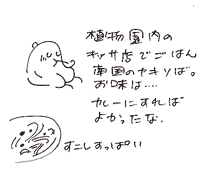 植物園内の
キッサ店でごはん
南国のヤキソば。
お味は‥‥
カレーにすれば
よかったな.
すこしすっぱい